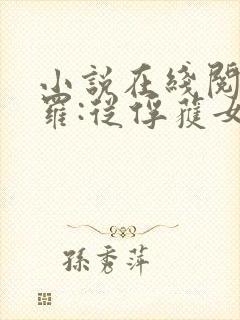 小説在綫閱
羅:從俘獲女
孫秀萍